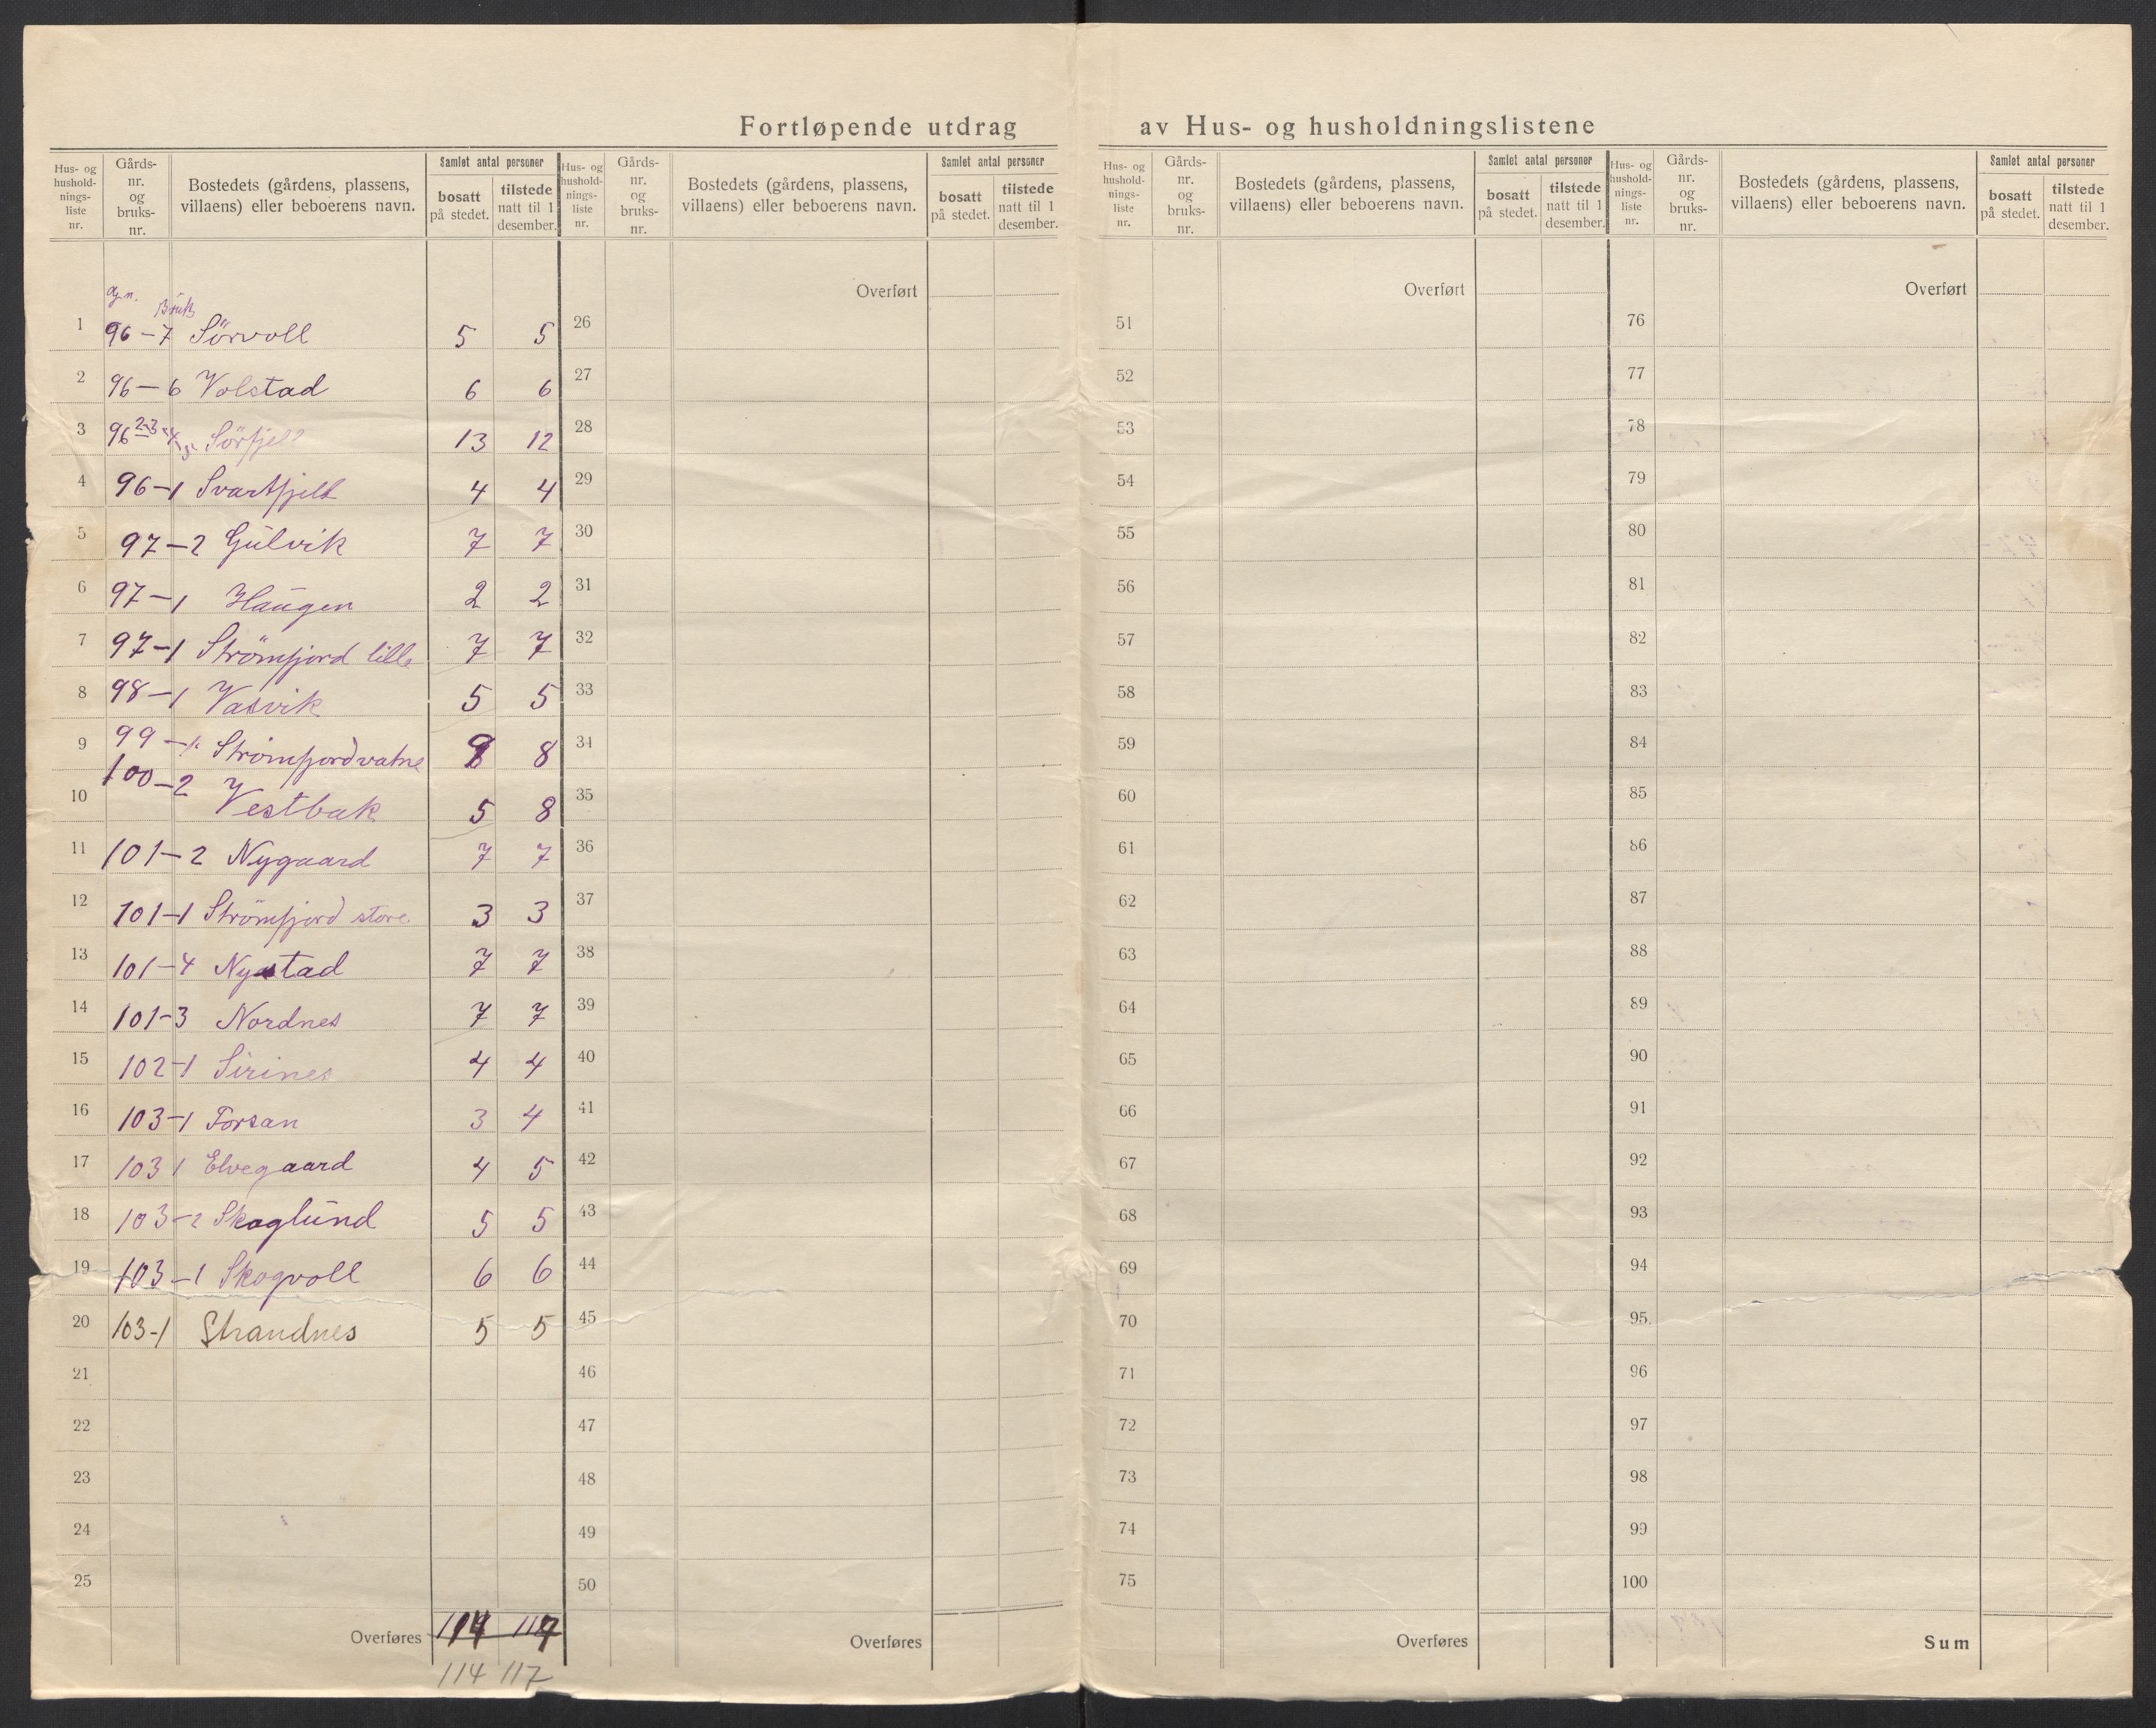 Fortløpende utdrag av Hus- og husholdningslistene
Hus- og hushold-nings-liste nr. Gårds-nr. og bruks-nr. Bostedets (gårdens, plassens, villaens) eller beboerens navn. Samlet antal personer bosatt på stedet. tilstede natt til 1 desember.
Hus- og hushold-nings-liste nr. Gårds-nr. og bruks-nr. Bostedets (gårdens, plassens, villaens) eller beboerens navn. Samlet antal personer bosatt på stedet. tilstede natt til 1 desember.
Hus- og hushold-nings-liste nr. Gårds-nr. og bruks-nr. Bostedets (gårdens, plassens, villaens) eller beboerens navn. Samlet antal personer bosatt på stedet. tilstede natt til 1 desember.
Hus- og hushold-nings-liste nr. Gårds-nr. og bruks-nr. Bostedets (gårdens, plassens, villaens) eller beboerens navn. Samlet antal personer bosatt på stedet. tilstede natt til 1 desember.
Overført Overført Overført
Bruk
1 96-7 Sörvoll 5 5 26 51 76
2 96-6 Volstad 6 6 27 52 77
3 96 2-3 Sörfjell 13 12 28 53 78
4 96-1 Svartfjell 4 4 29 54 79
5 97-2 Gulvik 7 7 30 55 80
6 97-1 Haugen 2 2 31 56 81
7 97-1 Strömfjord lille 7 7 32 57 82
8 98-1 Vasvik 5 5 33 58 83
9 99-1 Strömfjordvatne 9 8 34 59 84
10 100-2 Vestbak 5 8 35 60 85
11 101-2 Nygaard 7 7 36 61 86
12 101-1 Strömfjord store 3 3 37 62 87
13 101-4 Nystad 7 7 38 63 88
14 101-3 Nordnes 7 7 39 64 89
15 102-1 Sirines 4 4 40 65 90
16 103-1 Forsan 3 4 41 66 91
17 103 1 Elvegaard 4 5 42 67 92
18 103-2 Skoglund 5 5 43 68 93
19 103-1 Skogvoll 6 6 44 69 94
20 103-1 Strandnes 5 5 45 70 95
21 46 71 96
22 47 72 97
23 48 73 98
24 49 74 99
25 50 75 100
Overføres 114 117 Overføres Overføres Sum
114 117